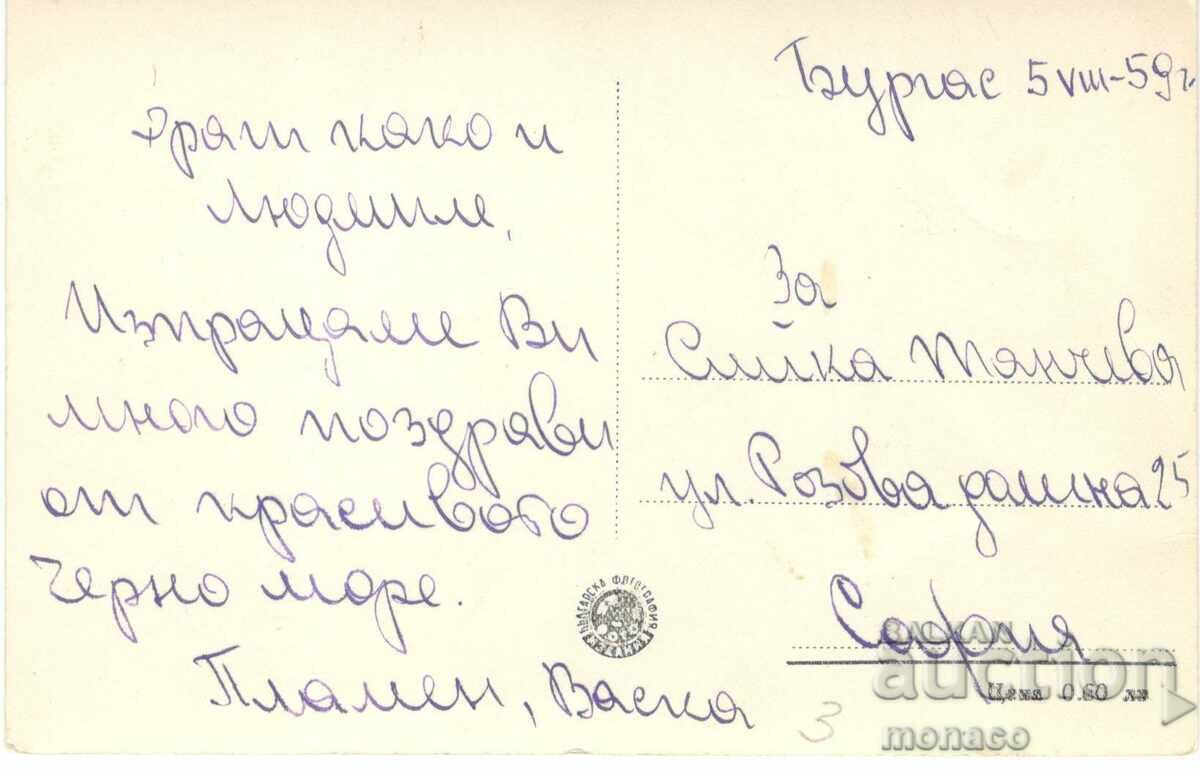 Бургас 5 VIII-59 г.
како и
Людмиле,
Изпращаме Ви
много поздрави
от красивото
Черно море.
Пламен, Васка
За
Сийка Танчева
ул. Розова долина 25
София
БЪЛГАРСКА ФОТОГРАФИЯ
Цена 0.60 лв
3
BALKAN
auction
monaco